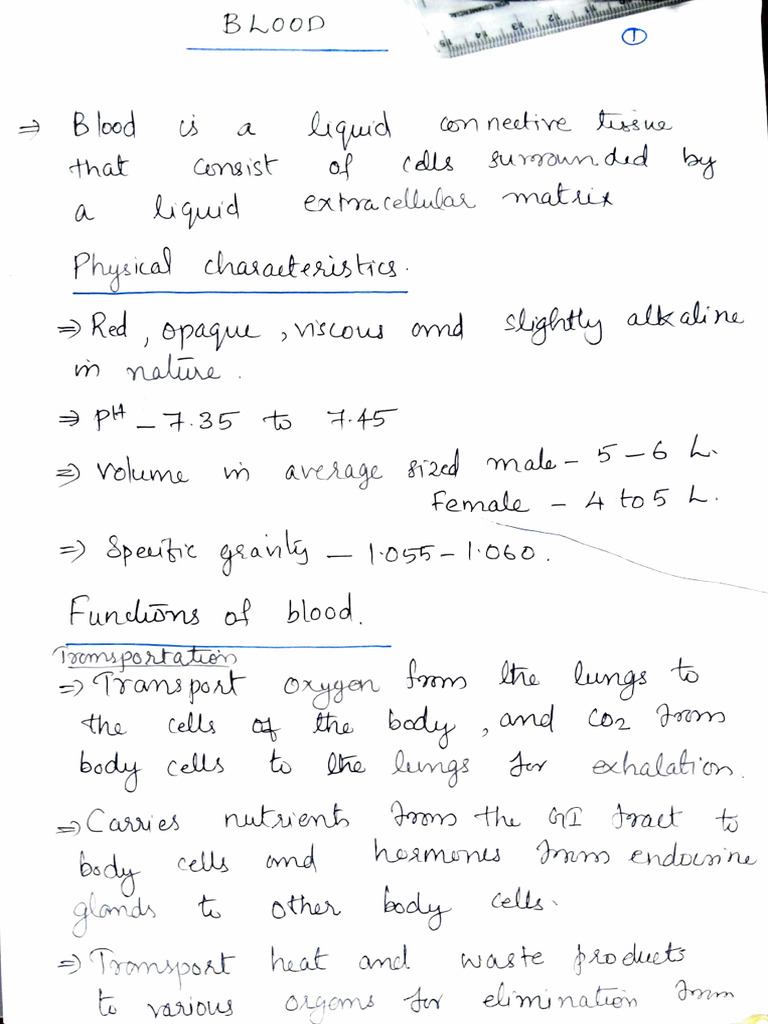 BLOOD
1
⇒ Blood is a liquid connective tissue
that consist of cells surrounded by
a liquid extracellular matrix
Physical characteristics.
⇒ Red, opaque, viscous and slightly alkaline
in nature.
⇒ pH – 7.35 to 7.45
⇒ volume in average sized male – 5 – 6 L.
Female – 4 to 5 L.
⇒ Specific gravity – 1.055 – 1.060.
Functions of blood.
Transportation
⇒ Transport oxygen from the lungs to
the cells of the body, and CO2 from
body cells to the lungs for exhalation.
⇒ Carries nutrients from the GI tract to
body cells and hormones from endocrine
glands to other body cells.
⇒ Transport heat and waste products
to various organs for elimination from